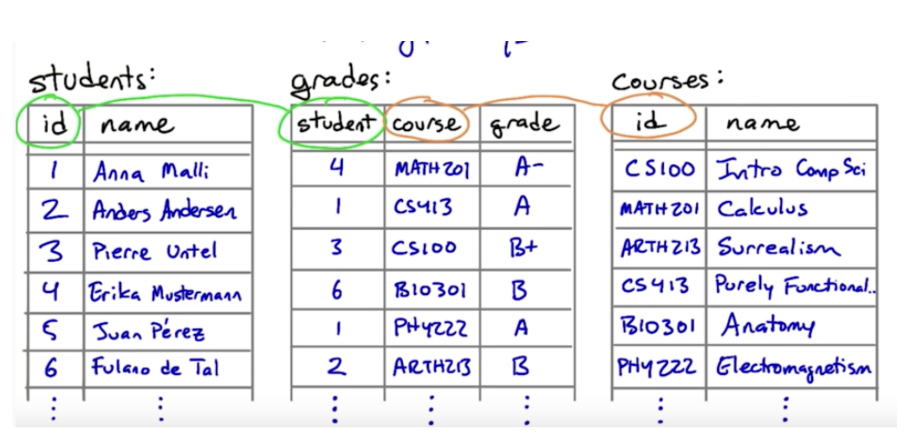 students:
id name
1 Anna Malli
2 Anders Andersen
3 Pierre Untel
4 Erika Mustermann
5 Juan Pérez
6 Fulano de Tal
grades:
student course grade
4 MATH201 A-
1 CS413 A
3 CS100 B+
6 BIO301 B
1 PHY222 A
2 ARTH213 B
courses:
id name
CS100 Intro CompSci
MATH201 Calculus
ARTH213 Surrealism
CS413 Purely Functional..
BIO301 Anatomy
PHY222 Electromagnetism